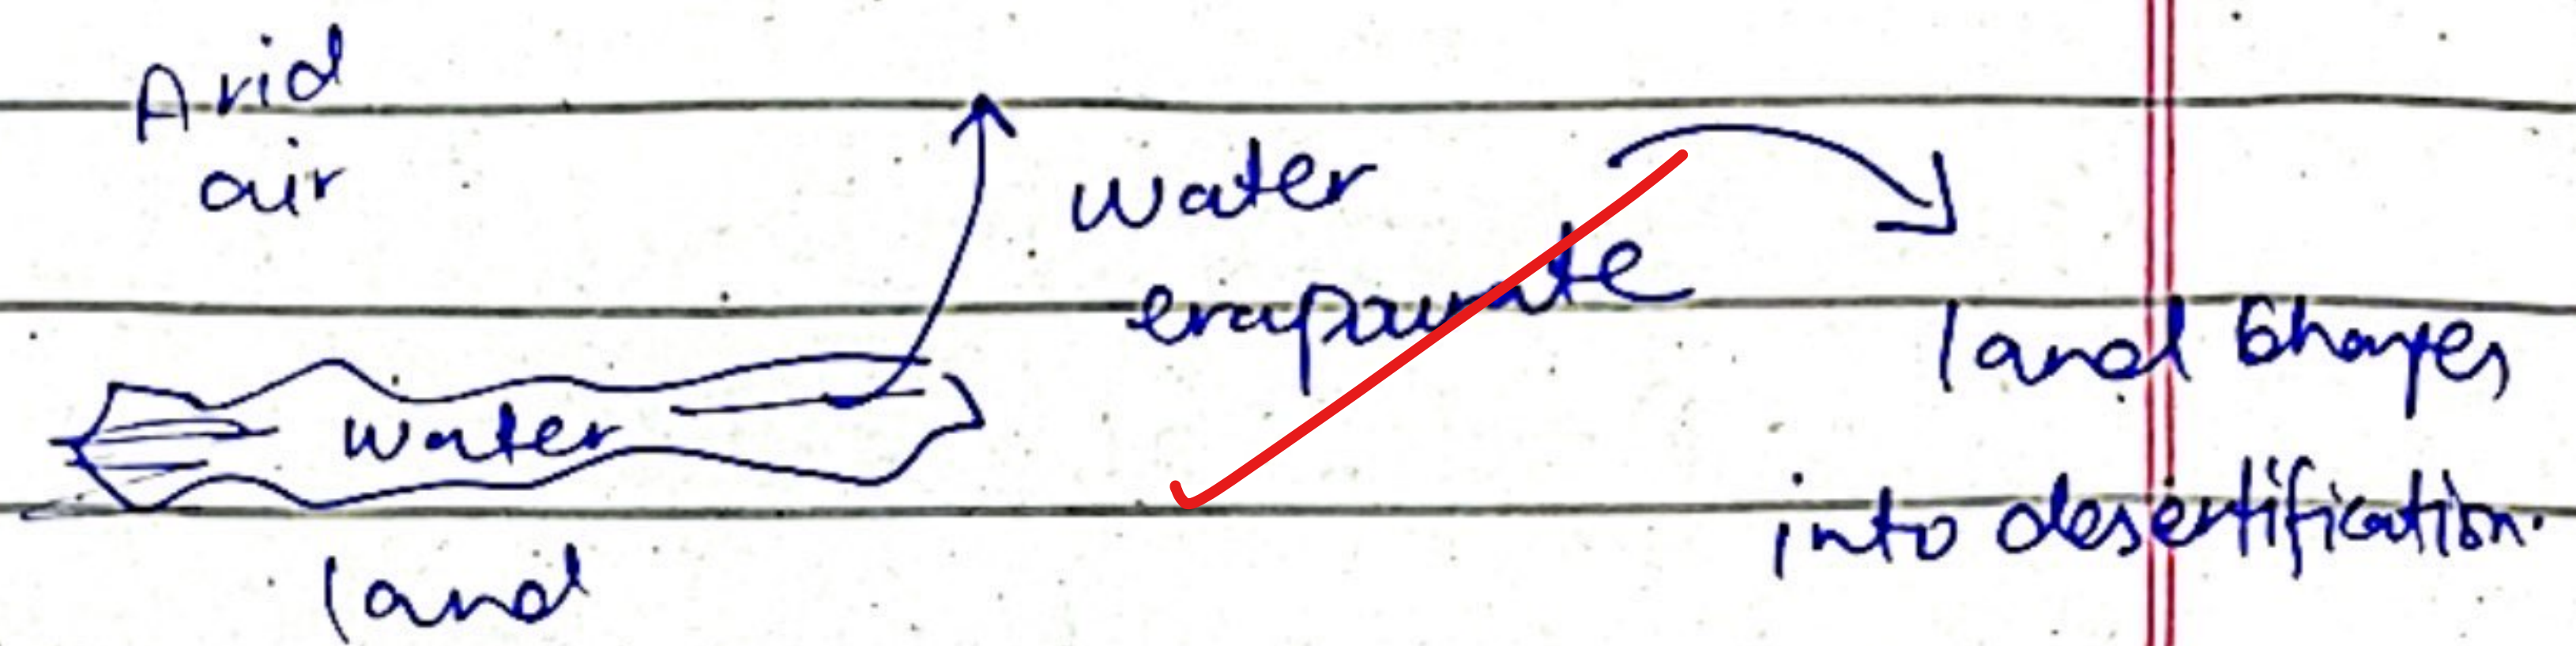 Arid
air
water
evapourate
water
land shapes
into desertification.
land